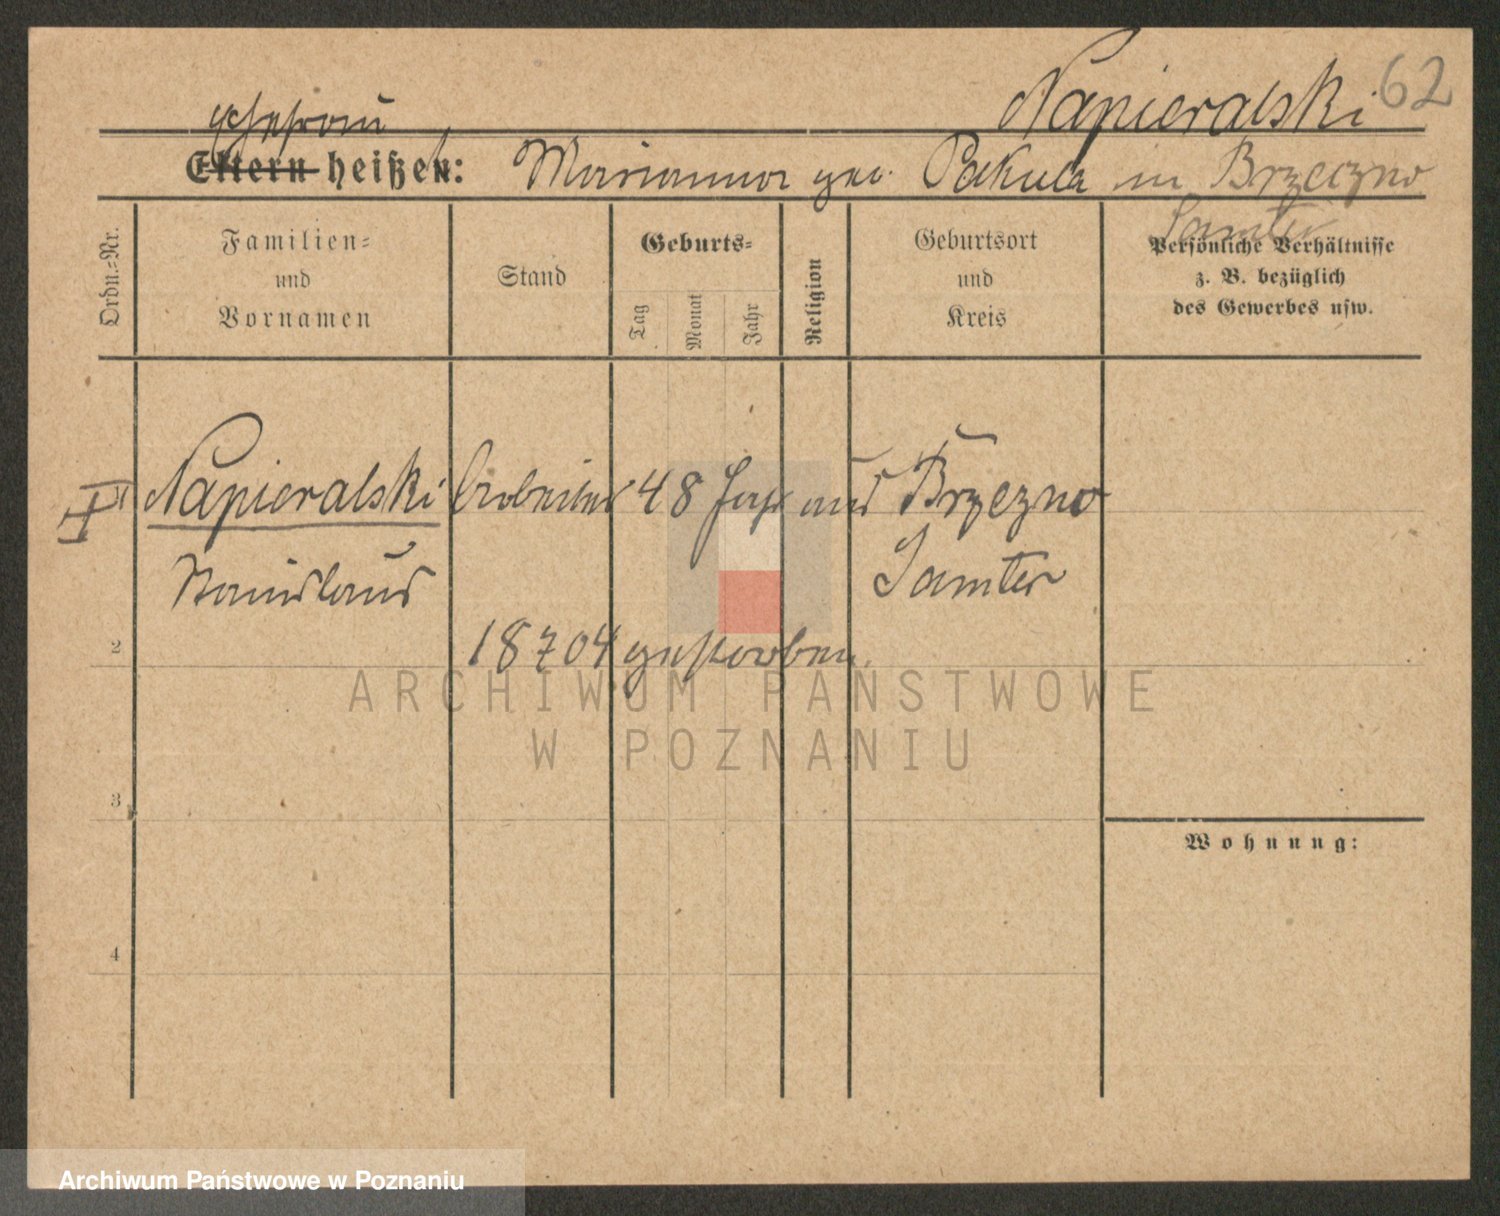 62
Napieralski
Ehefrau
Eltern heißen: Marianna geb. Pakula in Brzeczno
Samter
Ordn.-Nr.
Familien-
und
Vornamen
Stand
Geburts-
Tag
Monat
Jahr
Religion
Geburtsort
und
Kreis
Persönliche Verhältnisse
z. B. bezüglich
des Gewerbes usw.
II Napieralski Arbeiter 48 Jahr aus Brzezno
Stanislaus Samter
2
18704 gestorben.
ARCHIWUM PAŃSTWOWE
W POZNANIU
3
Wohnung:
4
Archiwum Państwowe w Poznaniu